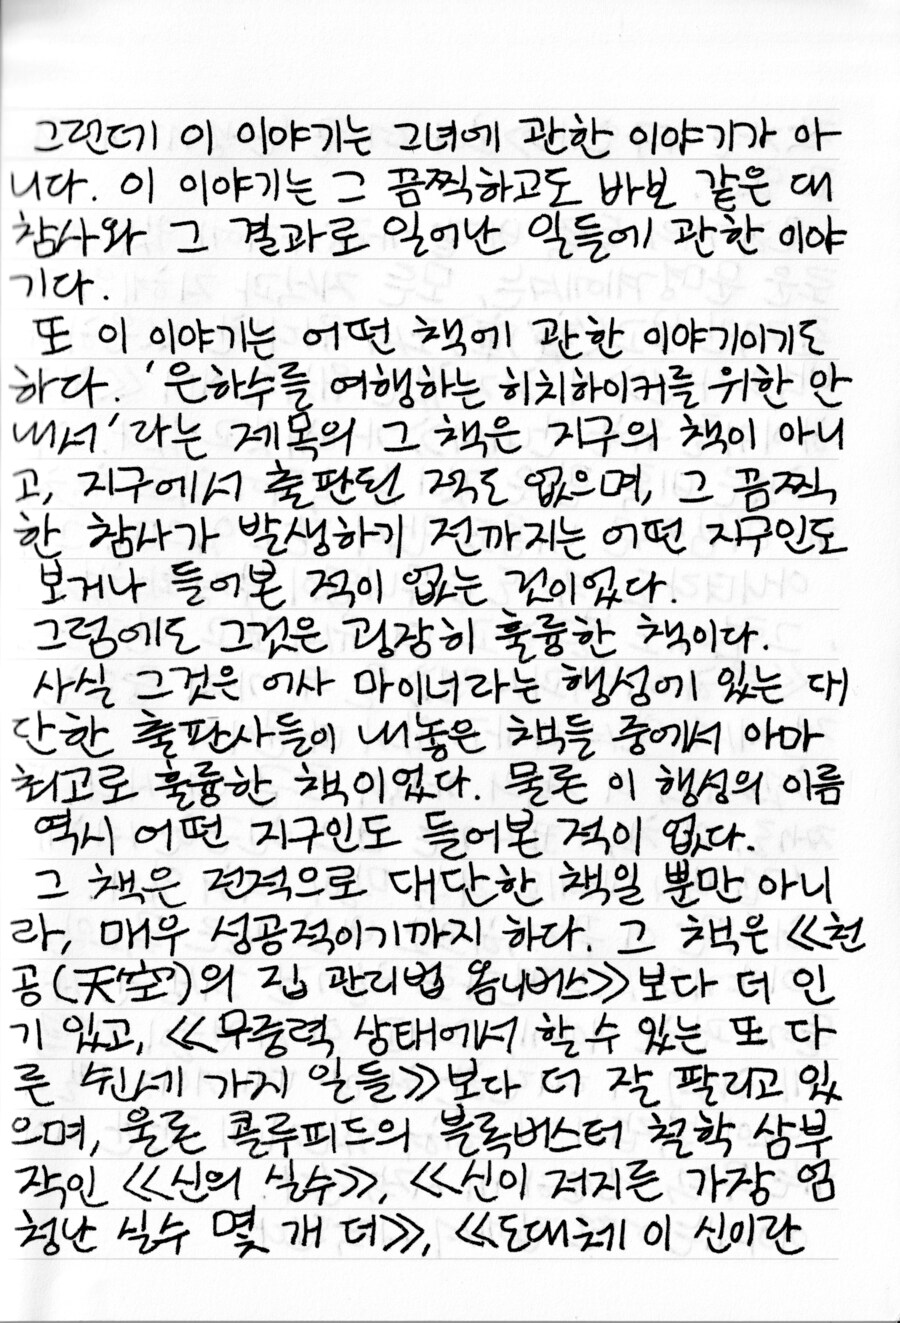 그런데 이 이야기는 그녀에 관한 이야기가 아
니다. 이 이야기는 그 끔찍하고도 바보 같은 대
참사와 그 결과로 일어난 일들에 관한 이야
기다.
또 이 이야기는 어떤 책에 관한 이야기이기도
하다. '은하수를 여행하는 히치하이커를 위한 안
내서'라는 제목의 그 책은 지구의 책이 아니
고, 지구에서 출판된 적도 없으며, 그 끔찍
한 참사가 발생하기 전까지는 어떤 지구인도
보거나 들어본 적이 없는 것이었다.
그럼에도 그것은 굉장히 훌륭한 책이다.
사실 그것은 어사 마이너라는 행성에 있는 대
단한 출판사들이 내놓은 책들 중에서 아마
최고로 훌륭한 책이었다. 물론 이 행성의 이름
역시 어떤 지구인도 들어본 적이 없다.
그 책은 전적으로 대단한 책일 뿐만 아니
라, 매우 성공적이기까지 하다. 그 책은 《천
공(天空)의 집 관리법 옴니버스》보다 더 인
기 있고, 《무중력 상태에서 할 수 있는 또 다
른 쉰세 가지 일들》보다 더 잘 팔리고 있
으며, 울론 콜루피드의 블록버스터 철학 삼부
작인 《신의 실수》, 《신이 저지른 가장 엄
청난 실수 몇 개 더》, 《도대체 이 신이란